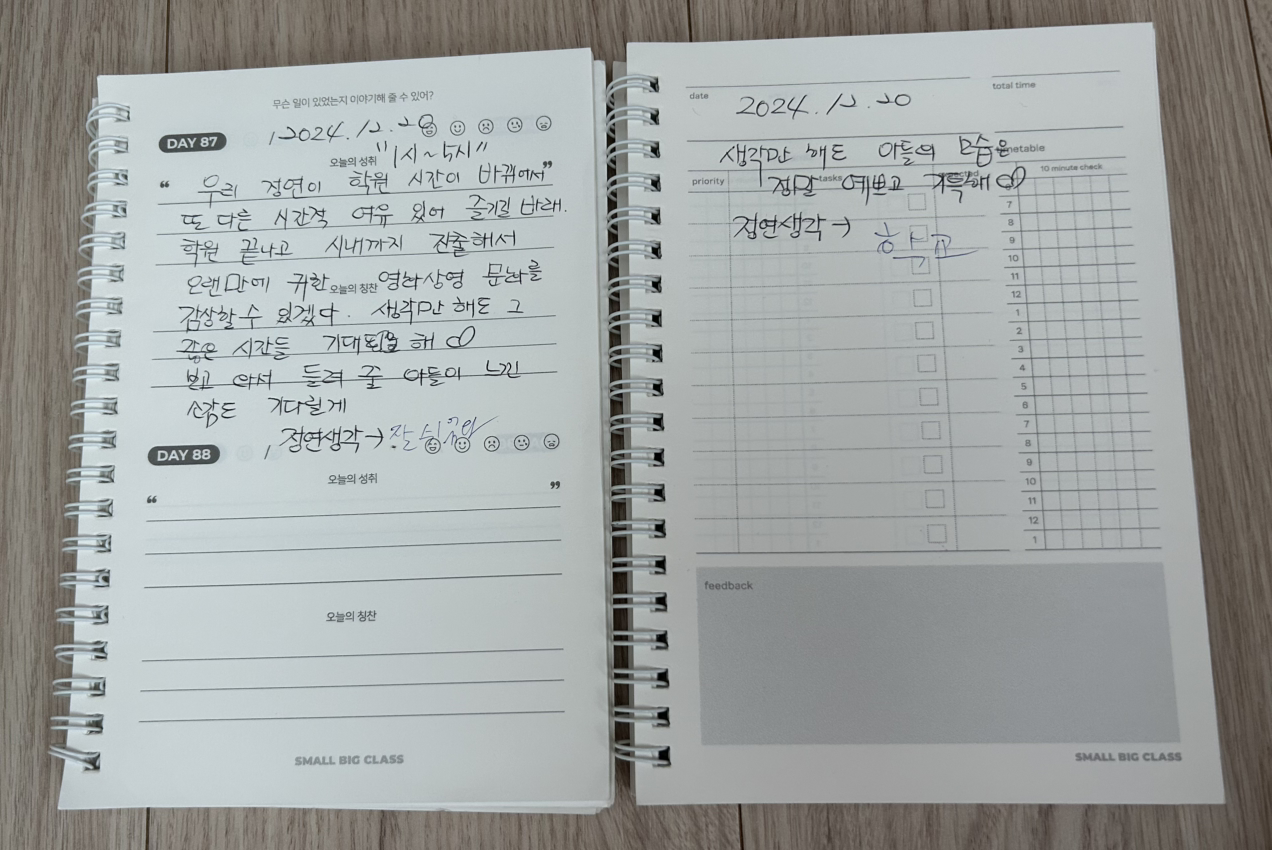 무슨 일이 있었는지 이야기해 줄 수 있어?
DAY 87
2024.12.20
오늘의 성취 "1시~5시"
"우리 정연이 학원 시간이 바뀌어서"
또 다른 시간적 여유 있어 즐기길 바래.
학원 끝나고 시내까지 진출해서
오랜만에 귀한 영화상영 문화를
오늘의 칭찬
감상할 수 있겠다. 생각만 해도 그
같은 시간들 기대 해
보고 와서 들려 줄 아들이 느낀
소감도 기다릴게
정연생각→
DAY 88
오늘의 성취
“ ”
오늘의 칭찬
SMALL BIG CLASS
date
2024.12.20
total time
생각만 해도 아들의 모습은
timetable
priority
tasks
10 minute check
정말 예쁘고 기특해
정연생각→
7
8
9
10
11
12
1
2
3
4
5
6
7
8
9
10
11
12
1
feedback
SMALL BIG CLASS